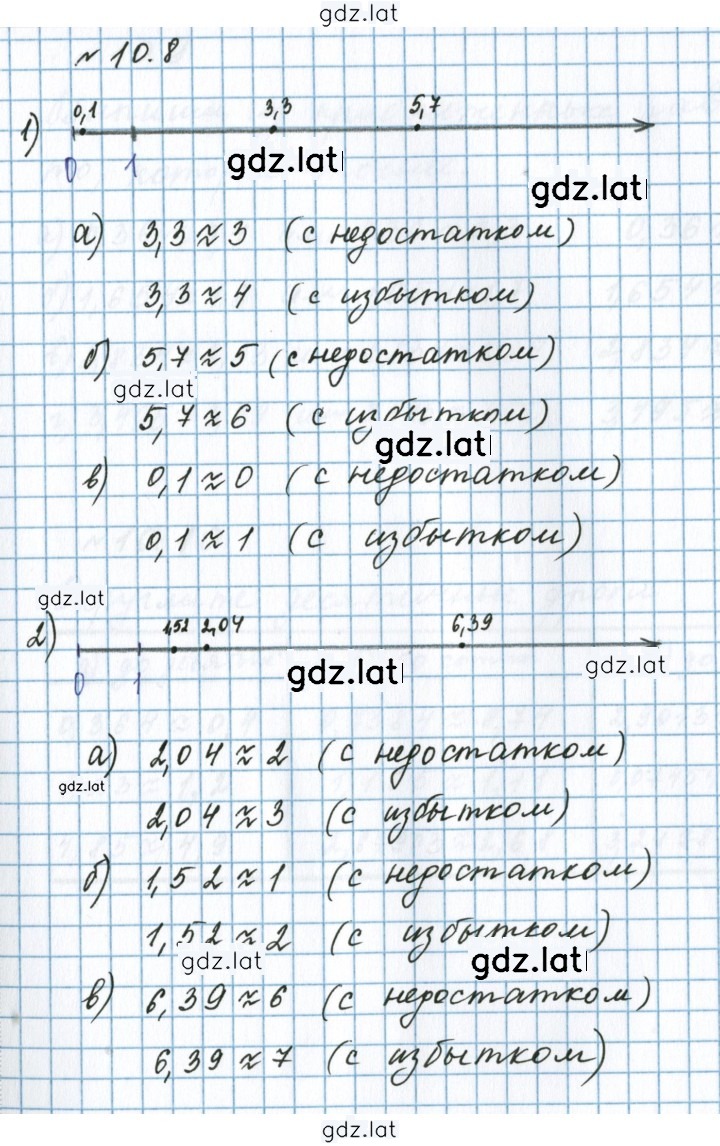 gdz.lat
№ 10.8
1) 0,1 3,3 5,7
0 1
gdz.lat
gdz.lat
а) 3,3 ≈ 3 (с недостатком)
3,3 ≈ 4 (с избытком)
б) 5,7 ≈ 5 (с недостатком)
gdz.lat
5,7 ≈ 6 (с избытком)
gdz.lat
в) 0,1 ≈ 0 (с недостатком)
0,1 ≈ 1 (с избытком)
gdz.lat
2) 1,52 2,04 6,39
0 1
gdz.lat
gdz.lat
а) 2,04 ≈ 2 (с недостатком)
gdz.lat
2,04 ≈ 3 (с избытком)
б) 1,52 ≈ 1 (с недостатком)
1,52 ≈ 2 (с избытком)
gdz.lat
gdz.lat
в) 6,39 ≈ 6 (с недостатком)
6,39 ≈ 7 (с избытком)
gdz.lat